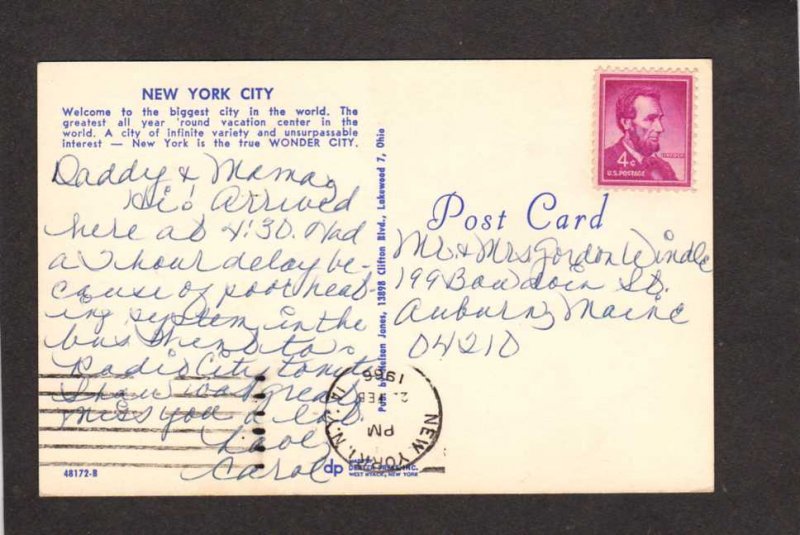 NEW YORK CITY
Welcome to the biggest city in the world. The
greatest all year 'round vacation center in the
world. A city of infinite variety and unsurpassable
interest — New York is the true WONDER CITY.
Daddy & Mama,
Hi! Arrived
here at 4:30. Had
a 2 hour delay be-
cause of poor heat-
ing system in the
bus. Went to
Radio City tonite
Show was great.
Miss you a lot.
Love,
Carol
48172-B
Pub. by Nelson Jones, 13898 Clifton Blvd., Lakewood 7, Ohio
dp
DEXTER PRESS, INC.
WEST NYACK, NEW YORK
LINCOLN
4¢
U.S. POSTAGE
Post Card
Mr. & Mrs Gordon Windle
199 Bowdoin St.
Auburn, Maine
04210
NEW YORK, N.Y.
PM
FEB
1966